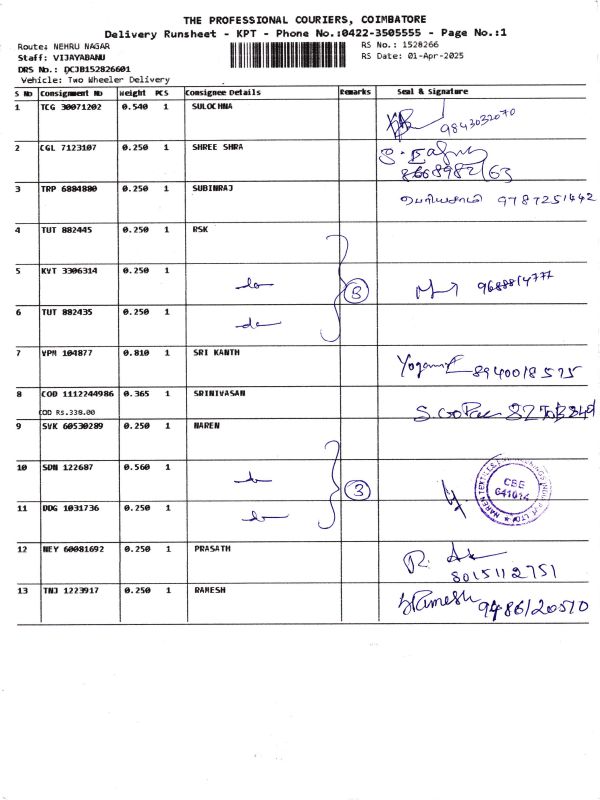 THE PROFESSIONAL COURIERS, COIMBATORE
Delivery Runsheet - KPT - Phone No.:0422-3505555 - Page No.:1
Route: NEHRU NAGAR
RS No.: 1528266
Staff: VIJAYABANU
RS Date: 01-Apr-2025
DRS No.: DCJB152826601
Vehicle: Two Wheeler Delivery
S No Consignment No Weight PCS Consignee Details Remarks Seal & Signature
1 TCG 30071202 0.540 1 SULOCHNA 9843032070
2 CGL 7123107 0.250 1 SHREE SHRA
3 TRP 6884880 0.250 1 SUBINRAJ பெரியசாமி 9787251442
4 TUT 882445 0.250 1 RSK
5 KVT 3306314 0.250 1 do 3
6 TUT 882435 0.250 1 do
7 VPM 104877 0.810 1 SRI KANTH 8940018575
8 COD 1112244986 0.365 1 SRINIVASAN
COD RS.330.00
9 SVK 60530289 0.250 1 NAREN
10 SDN 122687 0.560 1 do 3 CBE 641014
11 DDG 1031736 0.250 1 do
12 NEY 60081692 0.250 1 PRASATH 8015112751
13 TNJ 1223917 0.250 1 RAMESH Ramesh 9486120570